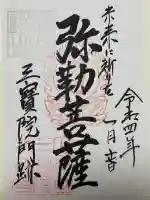 未来に祈りを
令和四年
一月吉日
弥勒菩薩
三寶院門跡